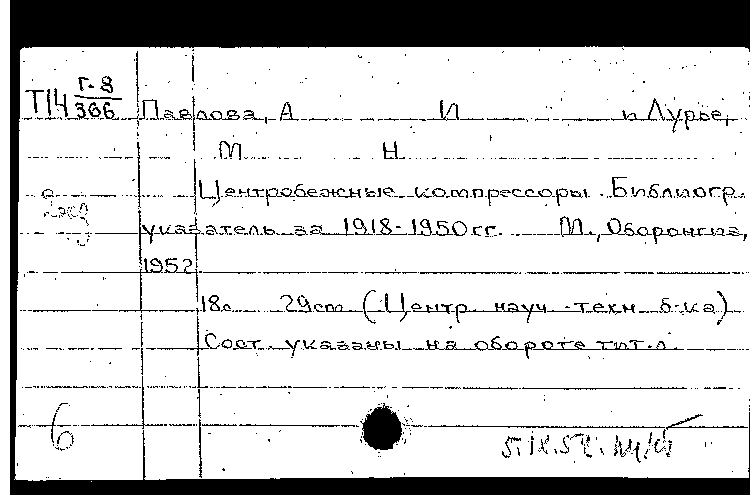 Т14 Г-8/366 Павлова, А И и Лурье,
М Н
Центробежные компрессоры. Библиогр.
указатель за 1918-1950 гг. М., Оборонгиз,
1952
18с 29cm (Центр. науч.-техн. б-ка)
Сост. указаны на обороте тит.л.
6
5.IX.52.